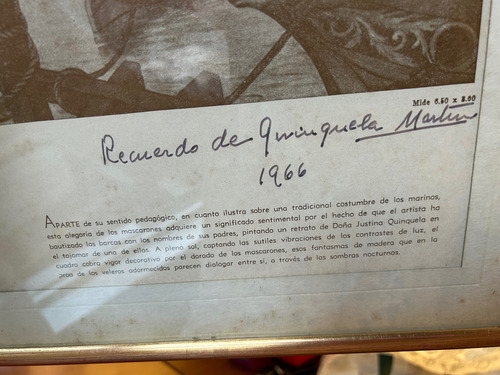 Mide 6.50 x 5.00
Recuerdo de Quinquela Martín
1966
APARTE de su sentido pedagógico, en cuanto ilustra sobre una tradicional costumbre de los marinos,
esta alegoría de los mascarones adquiere un significado sentimental por el hecho de que el artista ha
bautizado los barcos con los nombres de sus padres, pintando un retrato de Doña Justina Quinquela en
el tajamar de uno de ellos. A pleno sol, captando las sutiles vibraciones de los contrastes de luz, el
cuadro cobra vigor decorativo por el dorado de los mascarones, esos fantasmas de madera que en la
proa de los veleros adormecidos parecen dialogar entre sí, a través de las sombras nocturnas.